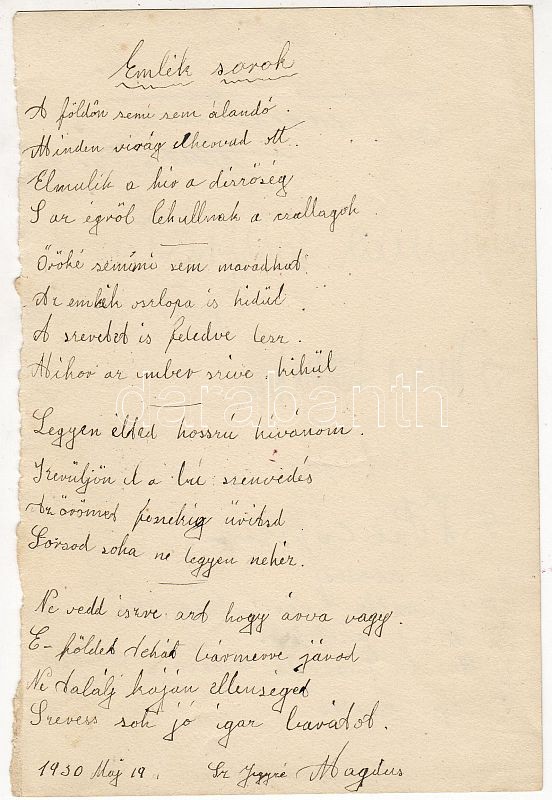 Emlék sorok
A földön semi sem álandó.
Minden virág elhervad ott.
Elmulik a hír a dicsőség
S az égről lehullnak a csillagok
Öröké semmi sem maradhat
Az emlék oszlopa is kidül
A szeretet is feledve lesz.
Mikor az ember szive kihül
Legyen élted hosszú kívánom.
Kerüljön el a bú szenvedés
Az örömet fenekig ürítsd
Sorsod soha ne legyen nehéz.
Ne vedd iszre azt hogy árva vagy.
E-földet tehát bármerre járod
Ne találj kaján ellenséget
Szeress sok jó igaz barátot.
1930 Máj 19. Magdus
darabanth